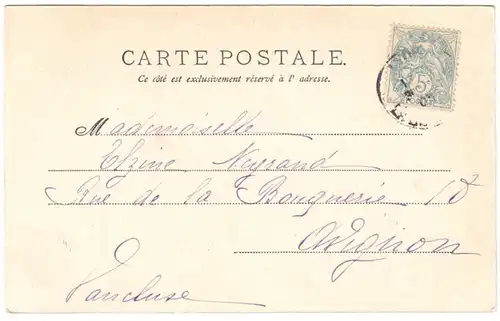 CARTE POSTALE.
Ce côté est exclusivement réservé à l'adresse.
Mademoiselle
Elzine Neyrand
Rue de la Bouquerie
Avignon
Vaucluse
5